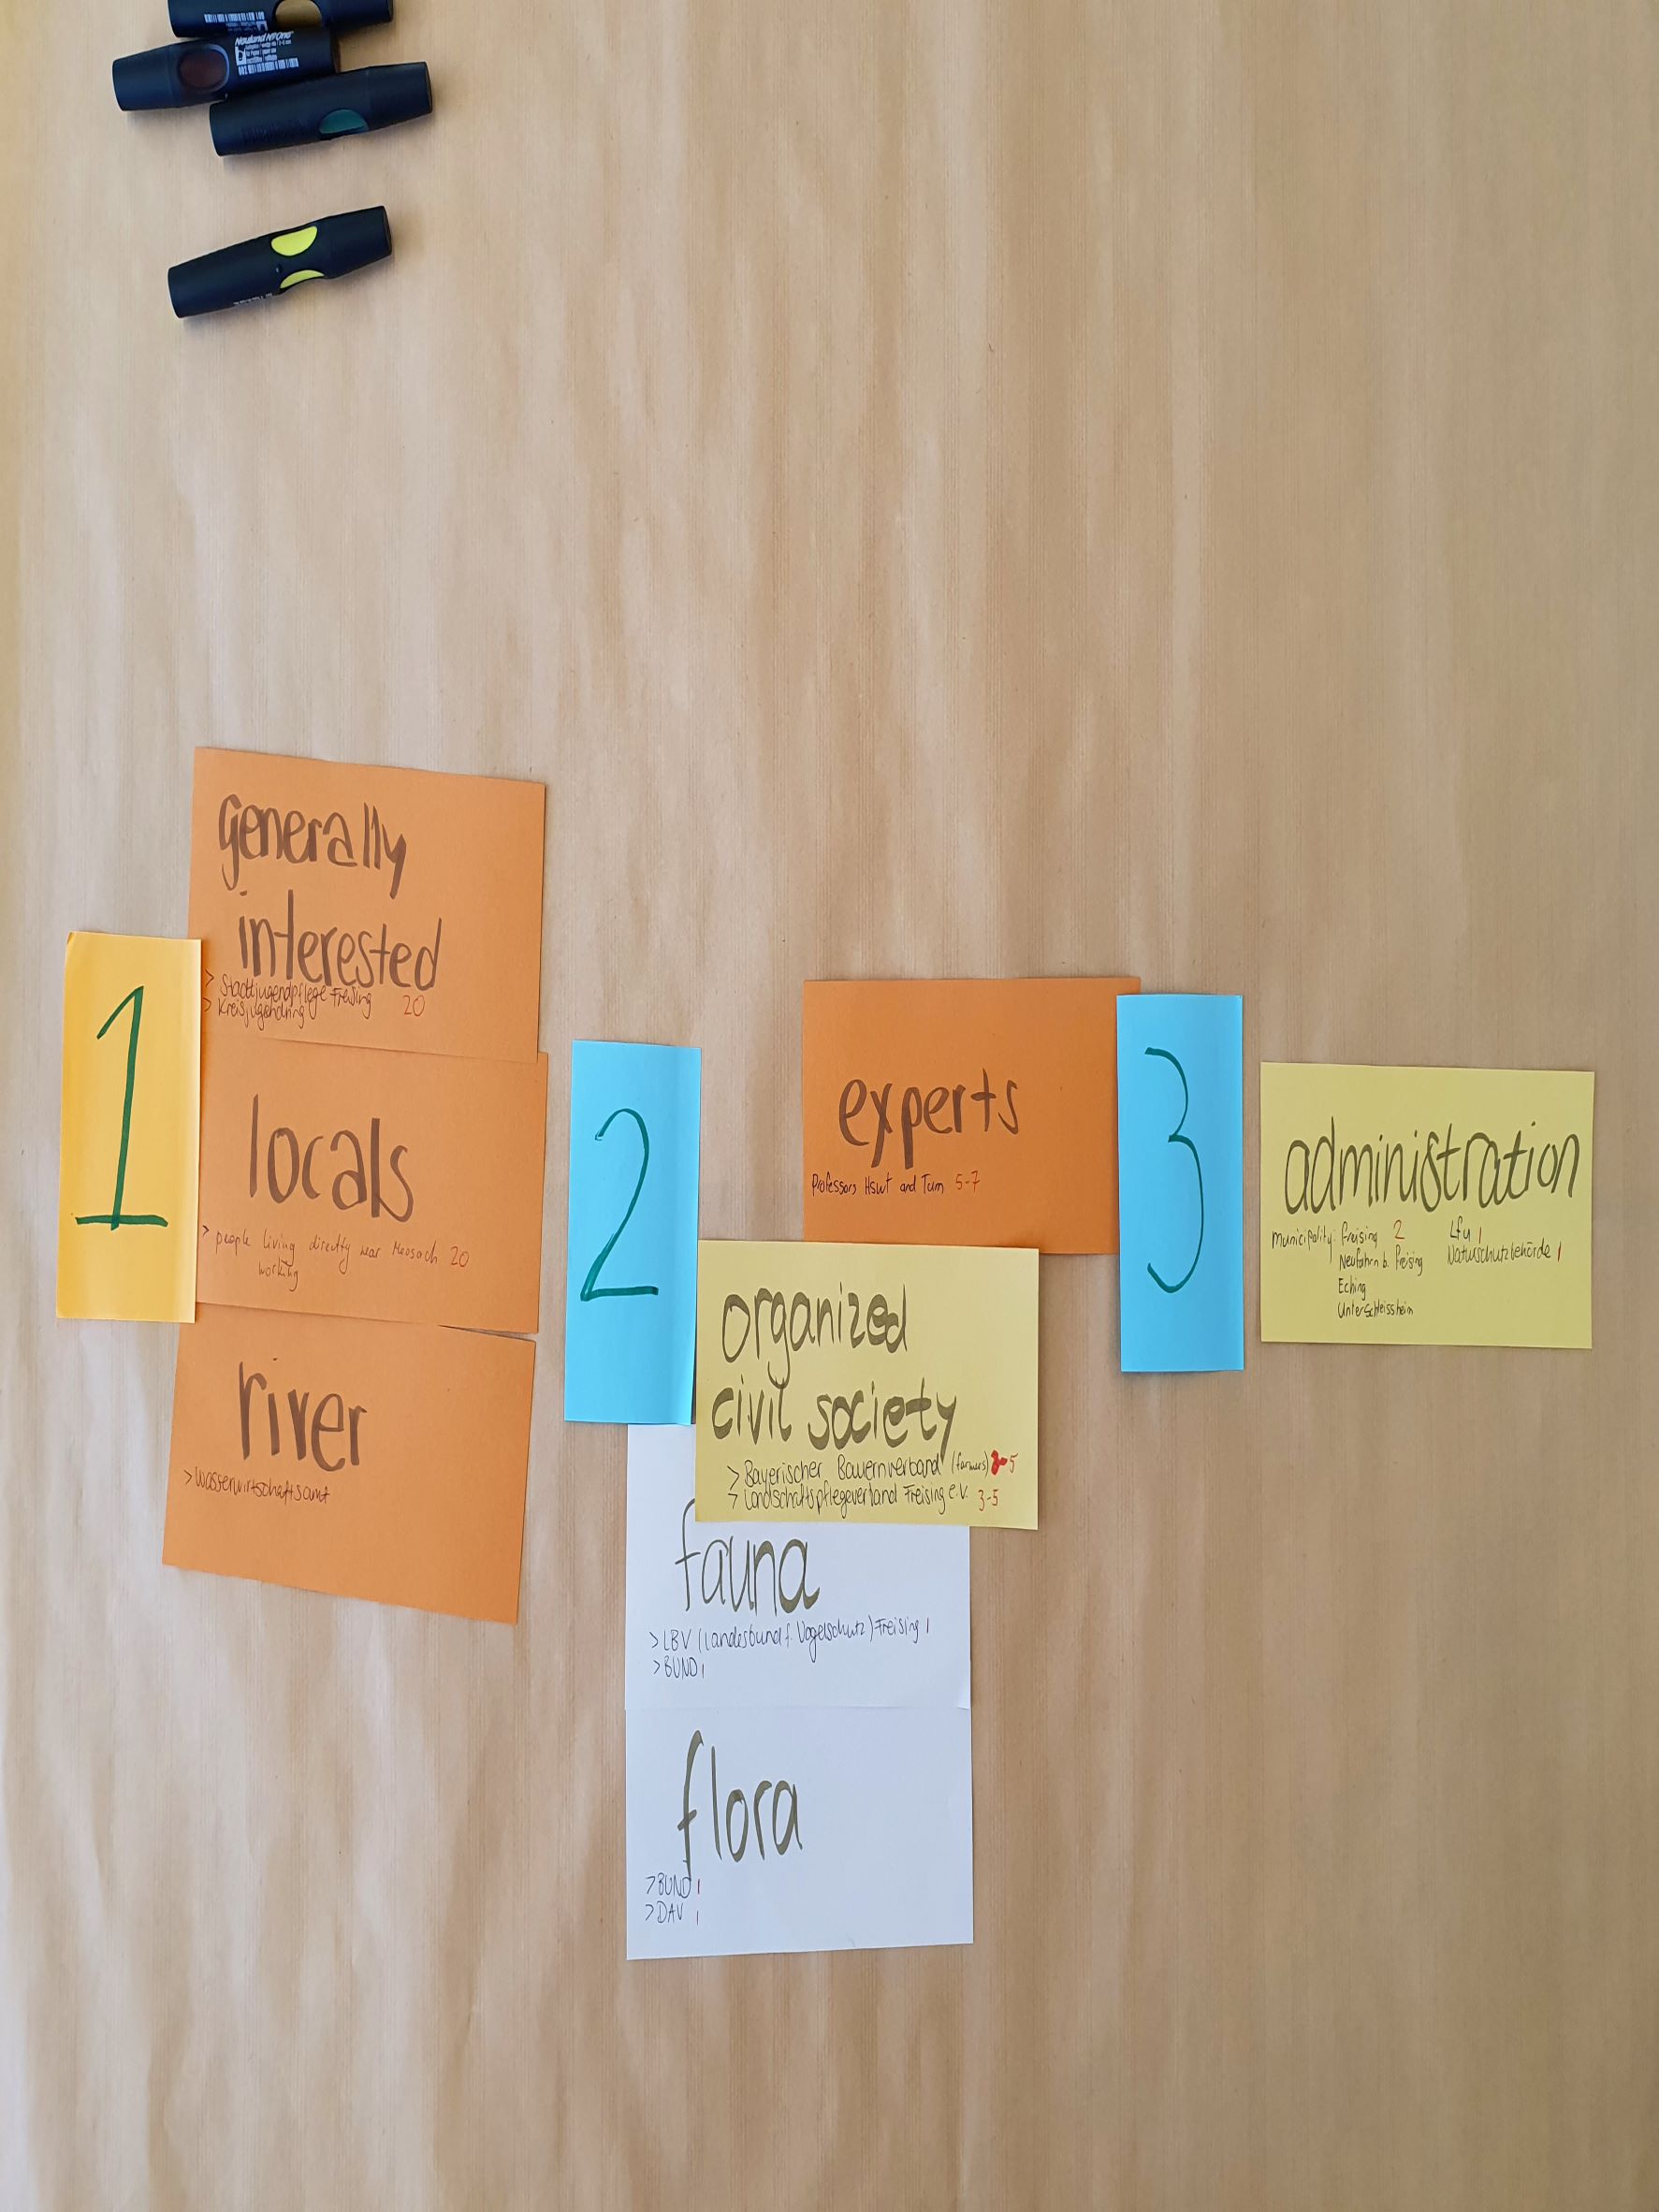 Neuland No.One
1
generally
interested
> Stadtjugendpflege Freising 20
> Kreisjugendring
locals
> people living directly near Moosach 20
working
river
> Wasserwirtschaftsamt
2
experts
Professors Hswt and Tum 5-7
organized
civil society
> Bayerischer Bauernverband (farmers) 3-5
> Landschaftspflegeverband Freising e.V. 3-5
fauna
> LBV (Landesbund f. Vogelschutz) Freising 1
> BUND 1
flora
> BUND 1
> DAV 1
3
administration
municipality: Freising 2
Neufahrn b. Freising
Eching
Unterschleissheim
Lfu 1
Naturschutzbehörde 1